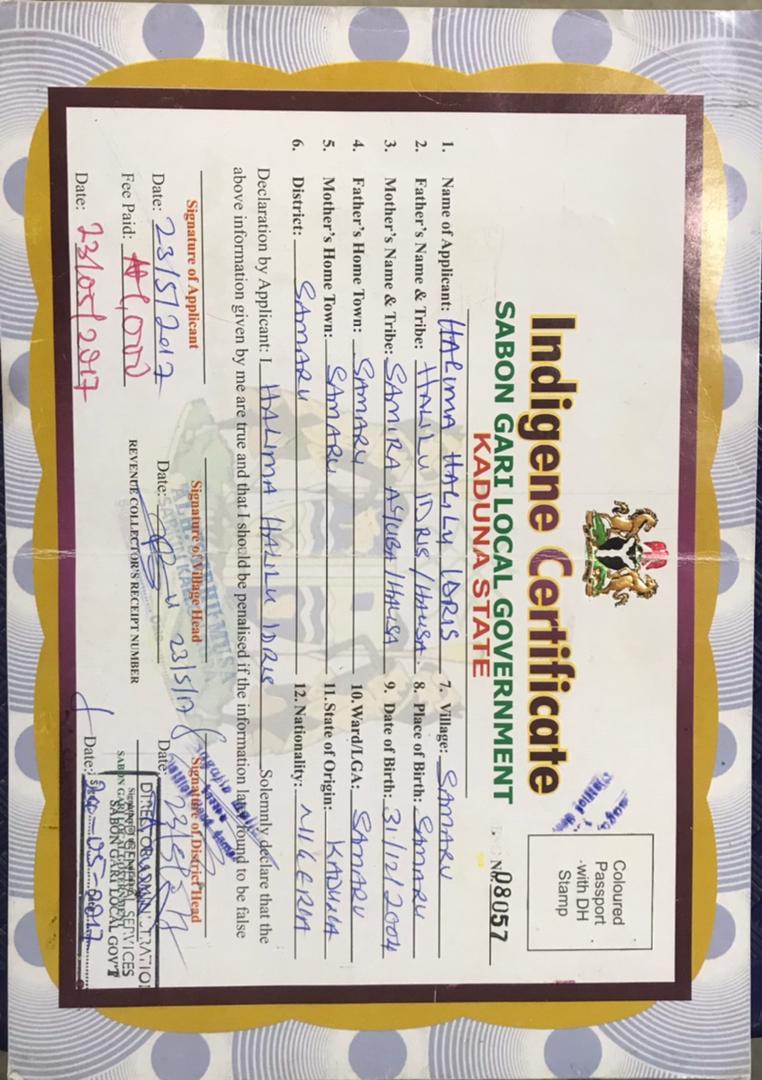 Indigene Certificate
SABON GARI LOCAL GOVERNMENT
KADUNA STATE
Coloured
Passport
-with DH
Stamp
No 08057
1. Name of Applicant: HALIMA HALILU IDRIS
2. Father's Name & Tribe: HALILU IDRIS/HAUSA.
3. Mother's Name & Tribe: SAMIRA AYUBA/HAUSA
4. Father's Home Town: SAMARU
5. Mother's Home Town: SAMARU
6. District: SAMARU
7. Village: SAMARU
8. Place of Birth: SAMARU
9. Date of Birth: 31/12/2004
10. Ward/LGA: SAMARU
11. State of Origin: KADUNA
12. Nationality: NIGERIA
Declaration by Applicant: I HALIMA HALILU IDRIS Solemnly declare that the
above information given by me are true and that I should be penalised if the information later found to be false
Signature of Applicant
Date: 23/5/2017
Fee Paid: ₦1,000
Date: 23/05/2017
Signature of Village Head
Date: 23/5/17
REVENUE COLLECTOR'S RECEIPT NUMBER
Signature of District Head
Date:
DIRECTOR ADMINISTRATION
GENERAL SERVICES
SABON GARI LOCAL GOV'T
Date: